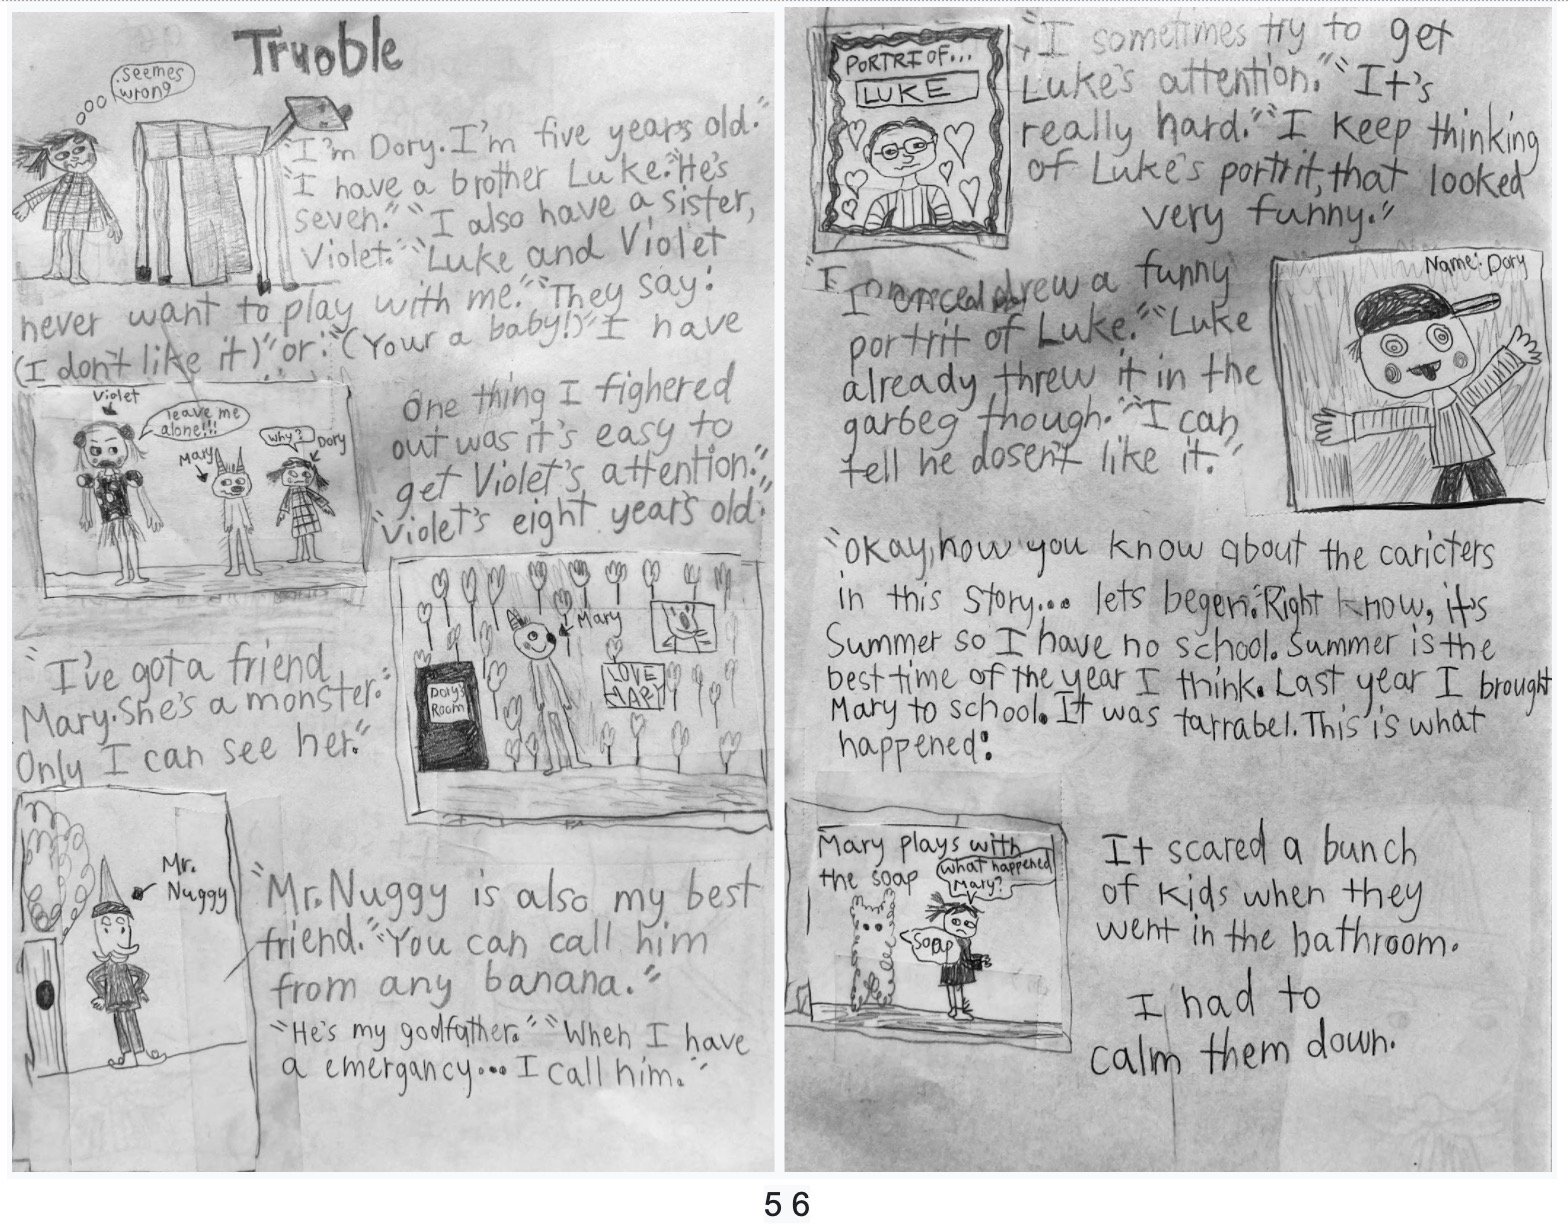 Truoble
seemes
wrong
"I'm Dory. I'm five years old."
"I have a brother Luke." "He's
seven." "I also have a sister,
Violet." "Luke and Violet
never want to play with me." "They say:
(I don't like it)" or: "(Your a baby!)" I have
violet
leave me
alone!!!
Mary
why?
Dory
One thing I fighered
out was it's easy to
get Violet's attention."
"Violet's eight years old."
"I've got a friend
Mary. She's a monster."
Only I can see her."
Mary
Dory's
Room
LOVE
MARY
Mr.
Nuggy
"Mr. Nuggy is also my best
friend." "You can call him
from any banana."
"He's my godfather." "When I have
a emergancy... I call him."
PORTRI OF...
LUKE
"I sometimes try to get
Luke's attention." "It's
really hard." "I keep thinking
of Luke's portrit, that looked
very funny."
I once drew a funny
portrit of Luke." "Luke
already threw it in the
garbeg though." "I can
tell he dosen't like it."
Name: Dory
"Okay, now you know about the caricters
in this story... lets begen." Right know, it's
Summer so I have no school. Summer is the
best time of the year I think. Last year I brought
Mary to school. It was tarrabel. This is what
happened:
Mary plays with
the soap
what happened
Mary?
Soap
It scared a bunch
of kids when they
went in the bathroom.
I had to
calm them down.
5 6